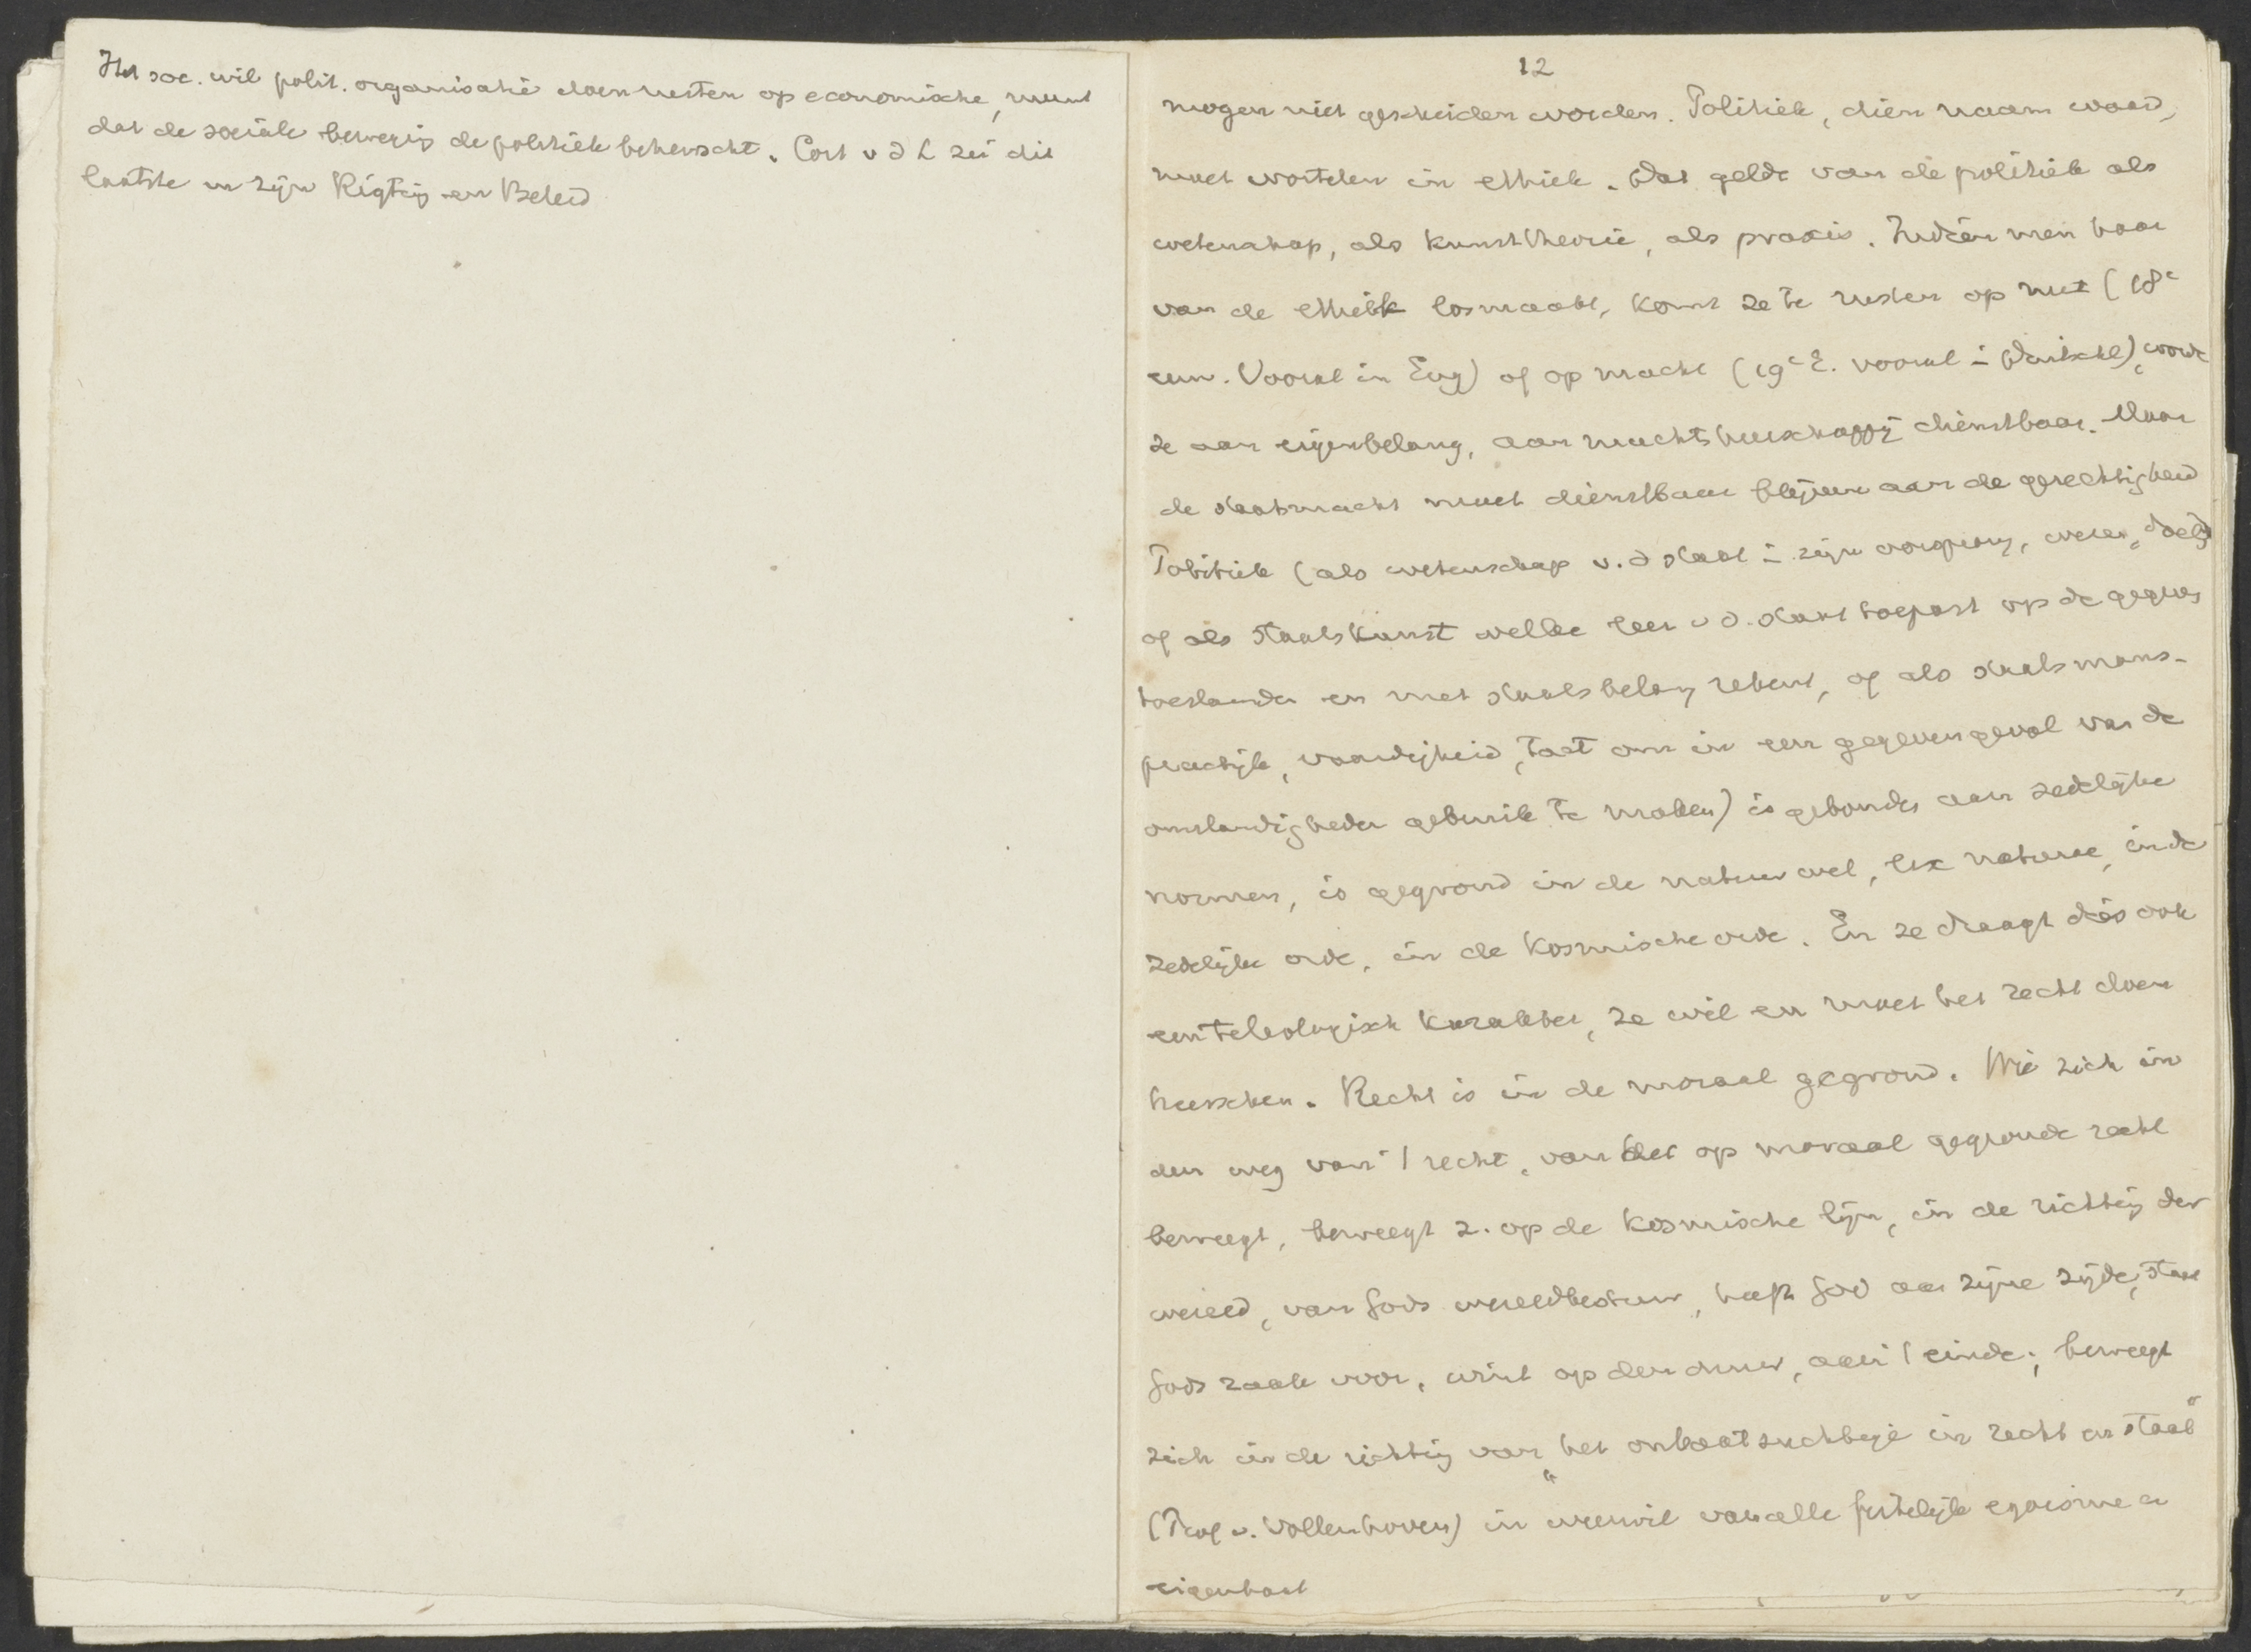 Het soc. wil polit. organisatie doen rusten op economische, meent
dat de sociale beweging de politiek beheerscht. Cort v d L zei dit
laatste in zijn Rigting en Beleid
12
mogen niet gescheiden worden. Politiek, dien naam waard,
moet wortelen in ethiek. Dat geldt van de politiek als
wetenschap, als kunsttheorie, als praxis. Indien men haar
van de ethiek losmaakt, komt ze te rusten op nut (18e
eeuw. Vooral in Eng) of op macht (19e E. vooral in Duitschl), wordt
ze aan eigenbelang, aan machtsheerschappij dienstbaar. Maar
de staatsmacht moet dienstbaar blijven aan de gerechtigheid
Politiek (als wetenschap v. d staat in zijn oorsprong, wezen, doel)
of als staatskunst welke leer v d. staat toepast op de gegeven
toestanden en met staatsbelang rekent, of als staatsmans-
practijk, vaardigheid, tact om in een gegeven geval van de
omstandigheden gebruik te maken) is gebonden aan zedelijke
normen, is gegrond in de natuurwet, lex naturae, in de
zedelijke orde, in de kosmische orde. En ze draagt dús ook
een teleologisch karakter, ze wil en moet het recht doen
heerschen. Recht is in de moraal gegrond. Wie zich in
den weg van 't recht, van het op moraal gegronde recht
beweegt, beweegt z. op de kosmische lijn, in de richting der
wereld, van Gods wereldbestuur, heeft God aan zijne zijde, staat
Gods zaak voor, wint op den duur, aan 't einde; beweegt
zich in de richting van "het onbaatzuchtige in recht en staat"
(Prof v. Vollenhoven) in weerwil van alle feitelijk egoisme en
eigenbaat